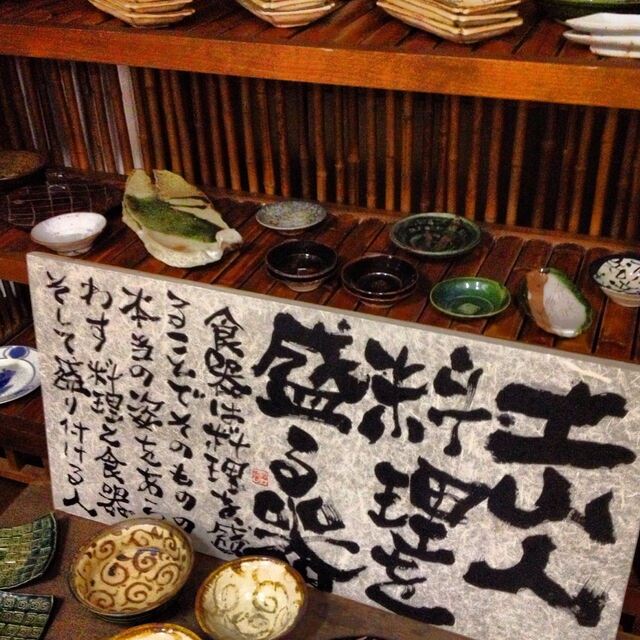 料理を
盛る器
食器は料理を盛
ることでそのものの
本当の姿をあら
わす 料理と食器
そして盛り付ける人